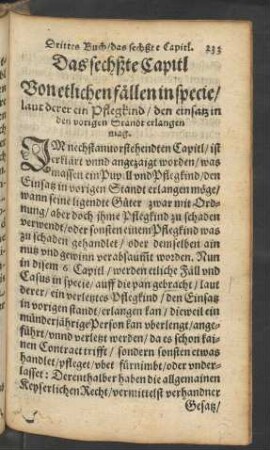 Drittes Buch/das sechßte Capitl. 233
Das sechßte Capitl
Von etlichen fällen in specie/
laut derer ein Pflegkind/ den einsatz in
den vorigen Standt erlangen
mag.
IM nechstanvorstehendten Capitl/ ist
erklärt vnnd angezaigt worden/ was
massen ein Pupill vnd Pflegkind/ den
Einsatz in vorigen Standt erlangen möge/
wann seine ligendte Güter zwar mit Ord-
nung/ aber doch jhme Pflegkind zu schaden
verwendt/ oder sonsten einem Pflegkind was
zu schaden gehandlet/ oder demselben ain
nutz vnd gewin verabsaumt worden. Nun
in disem 6 Capitl/ werden etliche Fäll vnd
Casus in specie/ auff die pan gebracht/ laut
derer/ ein verletztes Pflegkind/ den Einsatz
in vorigen standt/ erlangen kan/ dieweil ein
münderjährige Person kan vberlengt/ ange-
führt/ vnnd verletzt werden/ da es schon kai-
nen Contract trifft/ sondern sonsten etwas
handlet/ pfleget/ vbet fürnimbt/ oder vnder-
lasset: Derenthalber haben die allgemainen
Keyserlichen Recht/ vermittelst verhandner
Gesatz/